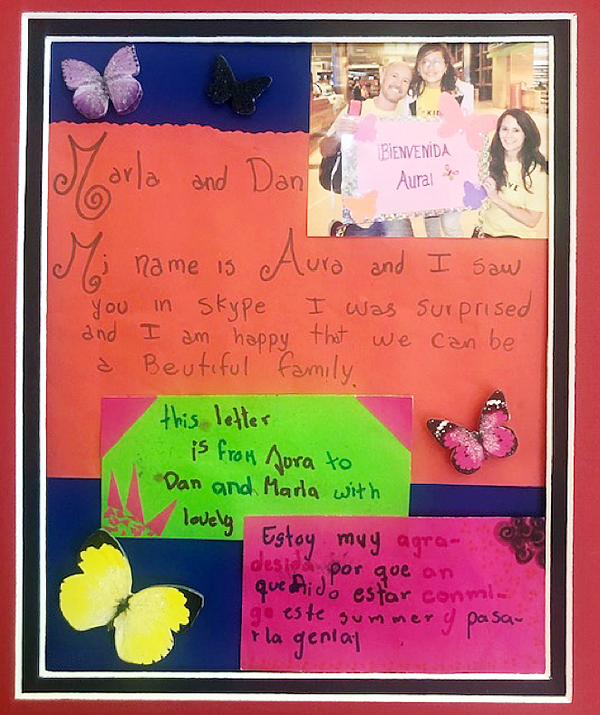 ¡BIENVENIDA
Aura!
Marla and Dan
Mi name is Aura and I saw
you in Skype I was surprised
and I am happy that we can be
a Beutiful family.
this letter
is from Aura to
Dan and Marla with
lovely
Estoy muy agra-
desida por que an
querido estar conmi-
go este summer y pasa-
rla genial